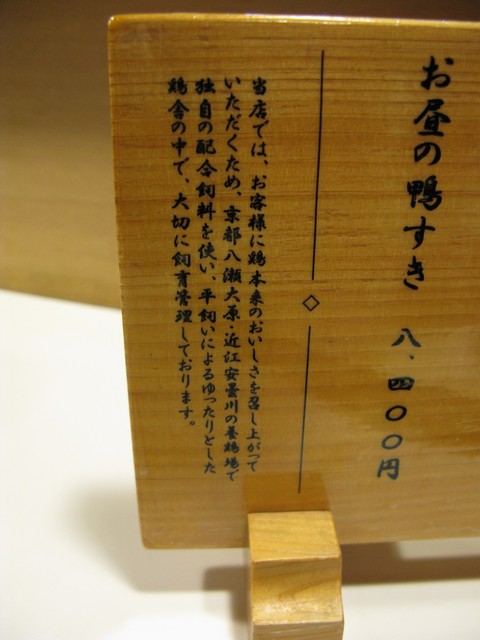 お昼の鴨すき 八、四〇〇円
当店では、お客様に鶏本来のおいしさを召し上がって
いただくため、京都八瀬大原・近江安曇川の養鶏場で
独自の配合飼料を使い、平飼いによるゆったりとした
鶏舎の中で、大切に飼育管理しております。